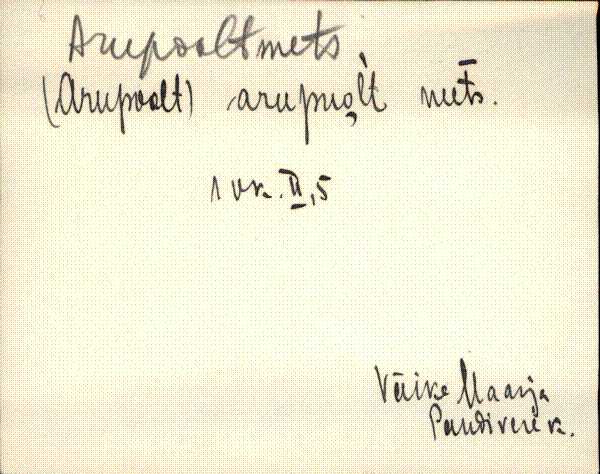 Arupooltmets
(Arupoolt) arupuo̭l̀t mets̄.
1 vk. II,5
Väike Maarja
Pandivere k.